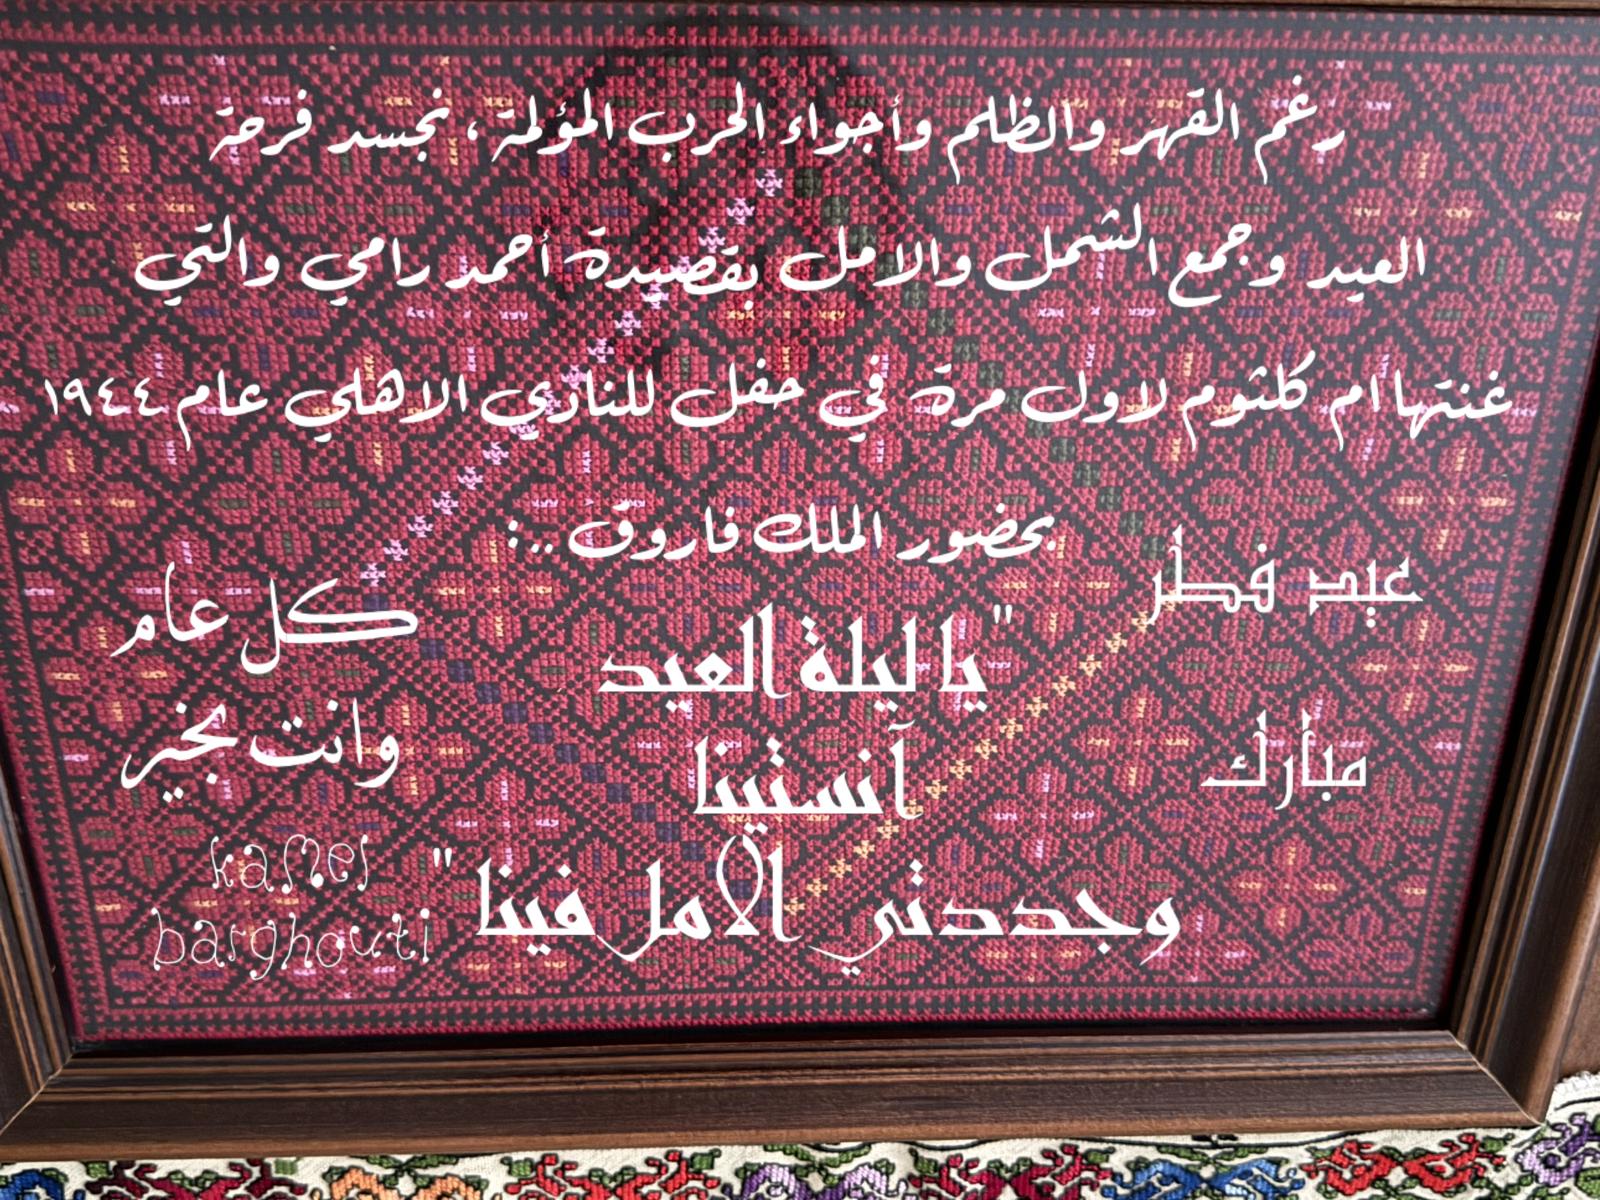 رغم القهر والظلم وأجواء الحرب المؤلمة ، نجسد فرحة
العيد وجمع الشمل والامل بقصيدة أحمد رامي والتي
غنتها ام كلثوم لاول مرة في حفل للنادي الاهلي عام ١٩٤٤
بحضور الملك فاروق ..:
عيد فطر
مبارك
"يا ليلة العيد
آنستينا
وجددتي الامل فينا"
كل عام
وانت بخير
kamel
barghouti